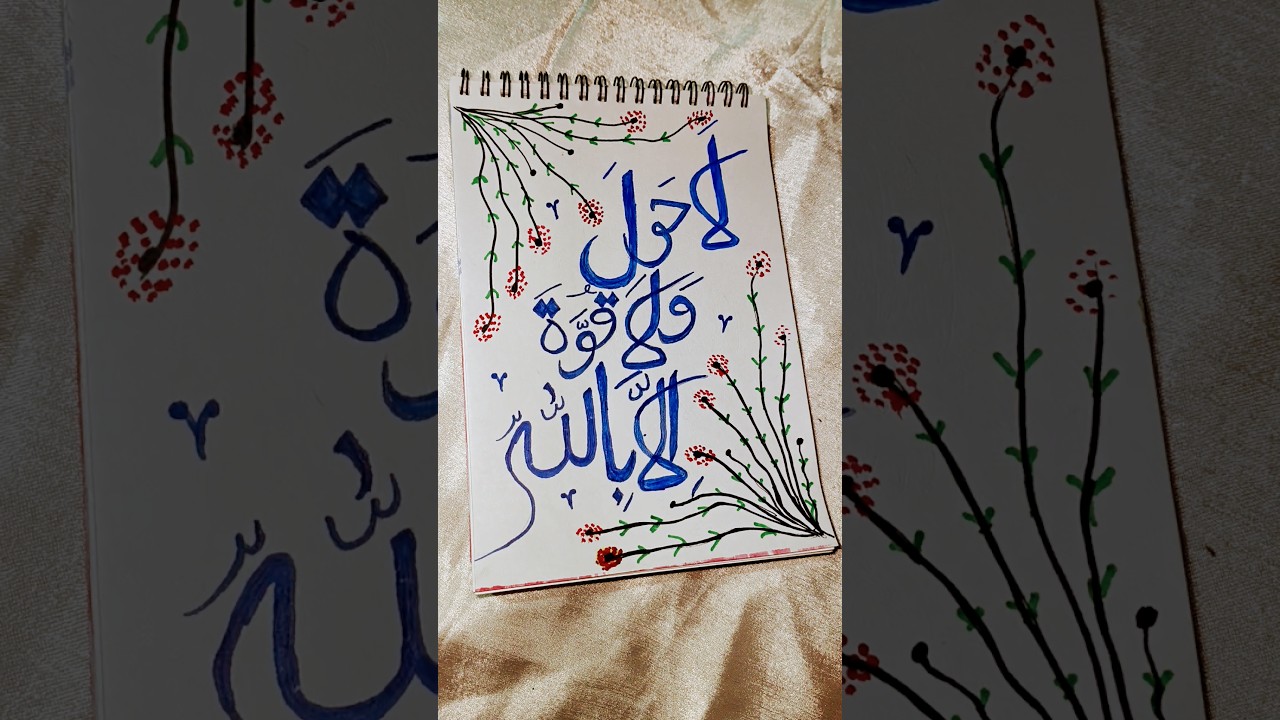 لَا حَولَ
وَلَا قُوَّةَ
اِلَّا بِاللّٰهِ